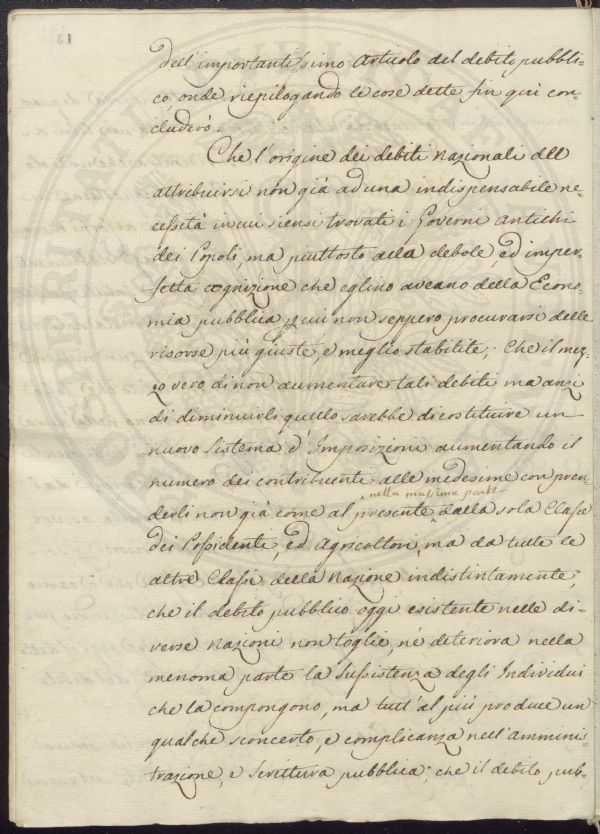 dell'importantissimo articolo del debito pubbli-
co, onde riepilogando le cose dette fin quì con-
cluderò.
Che l'origine dei debiti nazionali dee
attribuirsi non già ad una indispensabile ne-
cessità in cui siensi trovati i Governi antichi
dei Popoli, ma piuttosto alla debole, ed imper-
fetta cognizione che eglino aveano della Econo-
mia pubblica p cui non seppero procurarsi delle
risorse più giuste, e meglio stabilite; Che il mez-
zo vero di non aumentare tali debiti ma anzi
di diminuirli quello sarebbe di costituire un
nuovo Sistema d'Imposizioni aumentando il
numero dei contribuenti alle medesime con pren-
nella massima parte
derli non già come al presente dalla sola Classe
dei Possidenti, ed Agricoltori, ma da tutte le
altre Classi della Nazione indistintamente;
che il debito pubblico oggi esistente nelle di-
verse nazioni non toglie, nè deteriora nella
menoma parte la Sussistenza degli Individui
che la compongono, ma tutt'al più produce un
qualche sconcerto, e complicanza nell'amminis-
trazione, e Scrittura pubblica; che il debito pub-